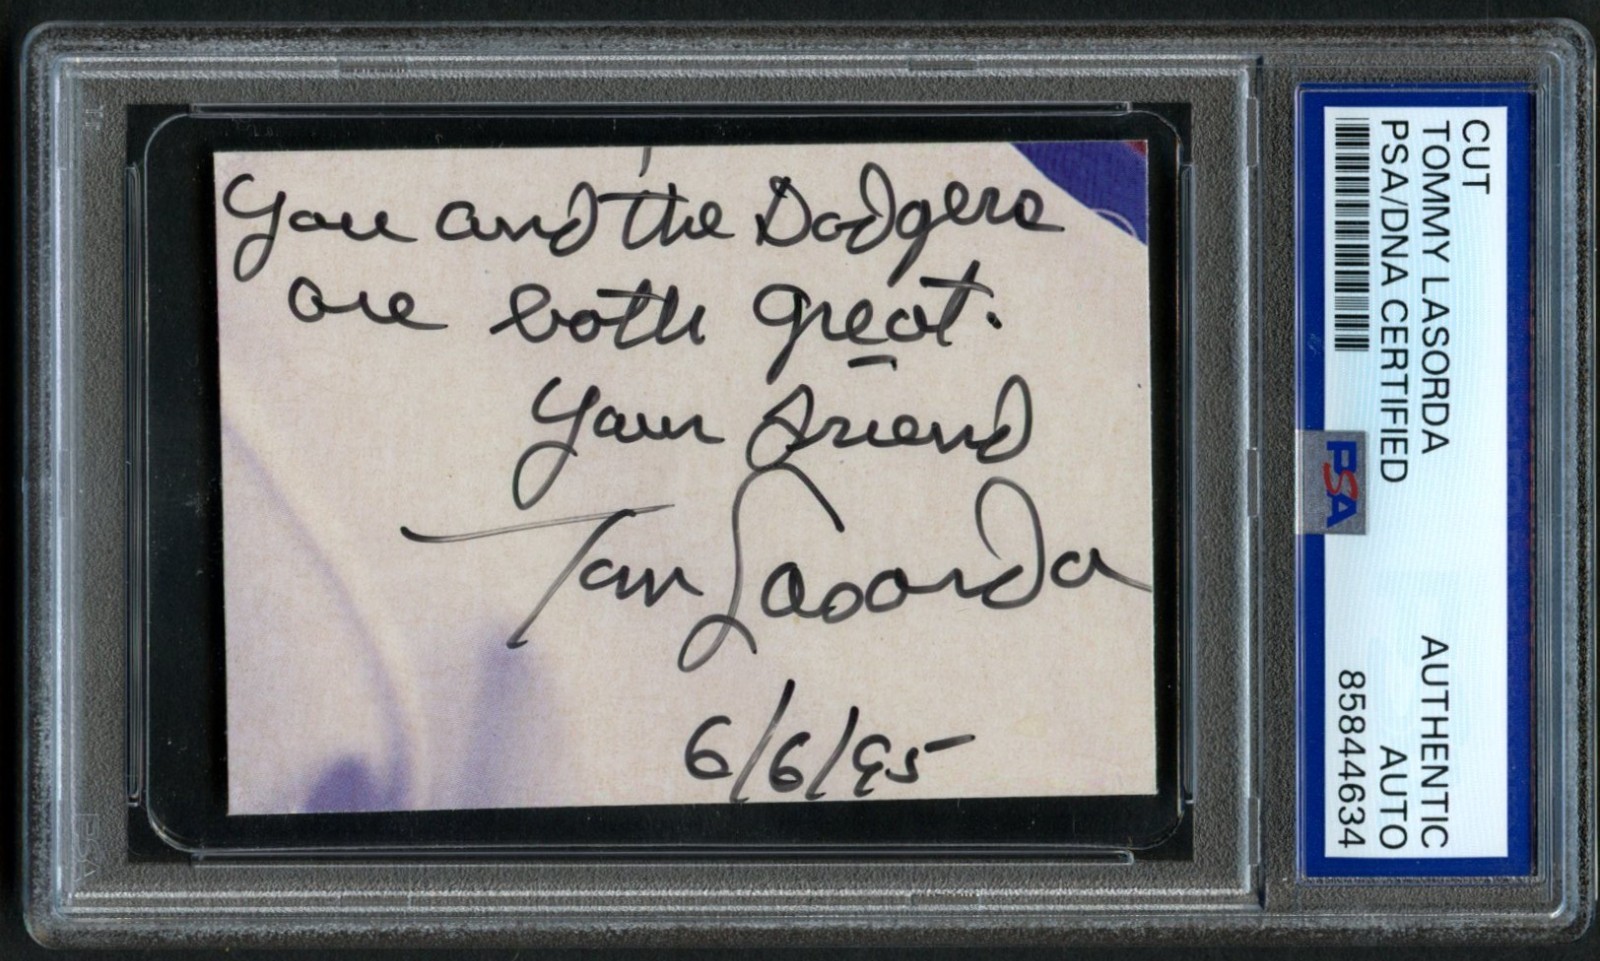 You and the Dodgers
are both great.
Your friend
Tom Lasorda
6/6/95
CUT
TOMMY LASORDA
PSA/DNA CERTIFIED
AUTHENTIC
AUTO
85844634
PSA